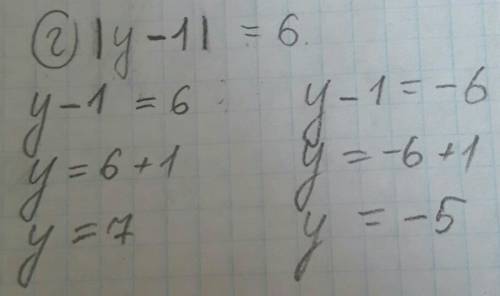 г) |y-1| = 6.
y-1 = 6 y-1 = -6
y = 6+1 y = -6+1
y = 7 y = -5